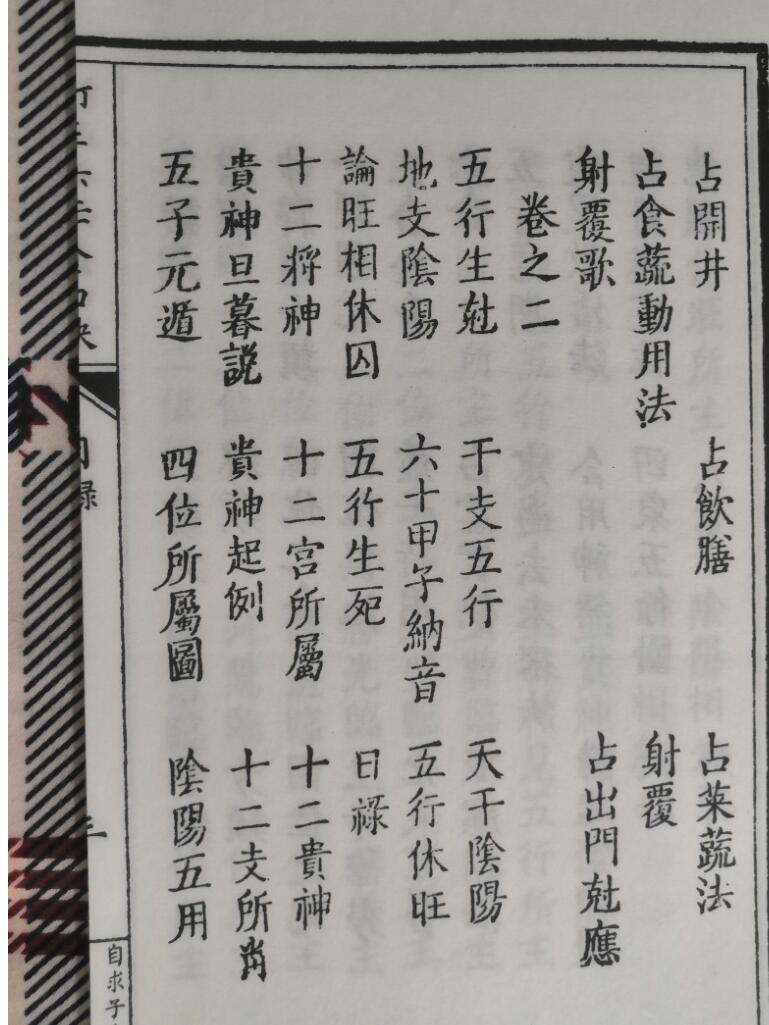 占開井 占飲膳 占菜蔬法
占食蔬動用法 射覆
射覆歌 占出門尅應
卷之二
五行生尅 干支五行 天干陰陽
地支陰陽 六十甲子納音 五行休旺
論旺相休囚 五行生死 日祿
十二將神 十二宮所屬 十二貴神
貴神旦暮説 貴神起例 十二支所肖
五子元遁 四位所屬圖 陰陽五用
目録
三
自求子